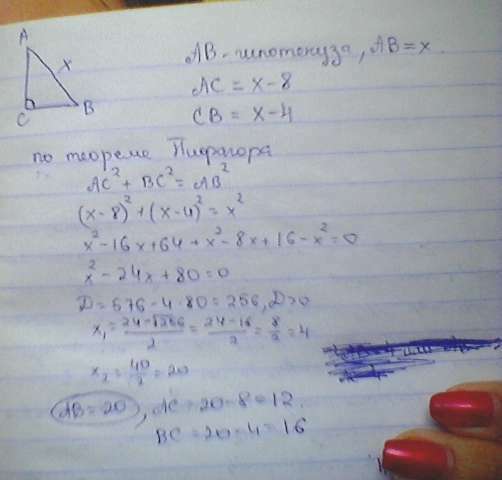 A
x
C
B
AB - гипотенуза, AB = x.
AC = x - 8
CB = x - 4
по теореме Пифагора
AC² + BC² = AB²
(x-8)² + (x-4)² = x²
x² - 16x + 64 + x² - 8x + 16 - x² = 0
x² - 24x + 80 = 0
D = 576 - 4·80 = 256, D>0
x₁ = (24-√256)/2 = (24-16)/2 = 8/2 = 4
x₂ = 40/2 = 20
AB = 20, AC = 20 - 8 = 12.
BC = 20 - 4 = 16